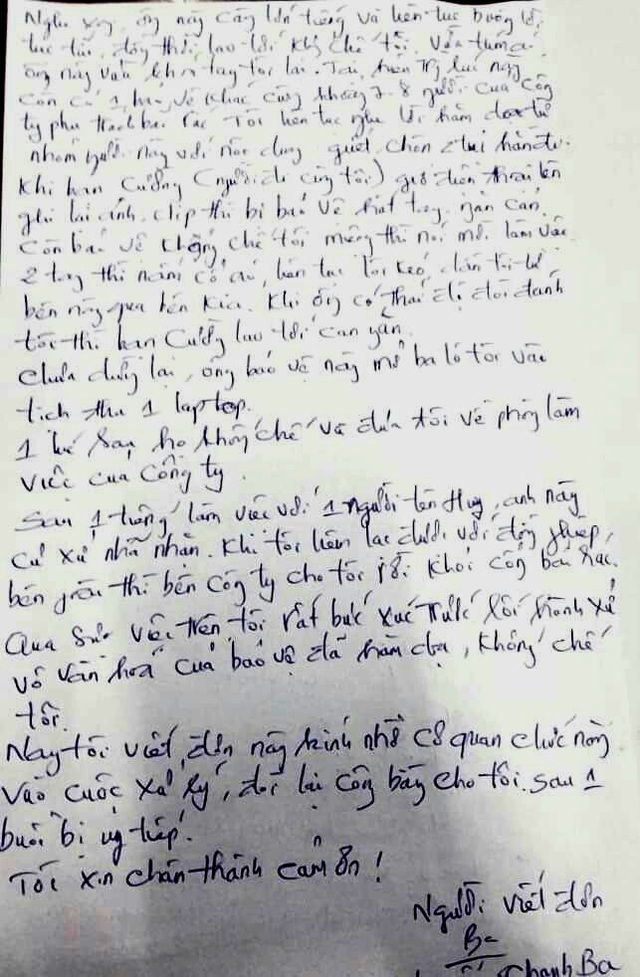 Nghe xong ông này càng lớn tiếng và liên tục buông lời
tục tĩu, đồng thời lao tới khống chế tôi. Vừa túm áo
ông này vừa khóa tay tôi lại. Tại hiện trường lúc này
còn có 1 bảo vệ khác cùng khoảng 7-8 người của công
ty phụ trách bãi rác. Tôi liên tục nghe lời hăm dọa từ
nhóm người này với nội dung giết, chôn 2 tụi hắn đi.
Khi bạn Cường (người đi cùng tôi) giơ điện thoại lên
ghi lại ảnh, clip thì bị bảo vệ hất tay, ngăn cản.
Còn bảo vệ khống chế tôi miệng thì nói mời làm việc
2 tay thì nắm cổ áo, liên tục lôi kéo, dẫn tôi từ
bên này qua bên kia. Khi ông có thái độ đòi đánh
tôi thì bạn Cường lao tới can ngăn.
Chưa dừng lại, ông bảo vệ này mở ba lô tôi và
tịch thu 1 laptop.
1 lúc sau, họ khống chế và đưa tôi về phòng làm
việc của công ty.
Sau 1 tiếng làm việc với 1 người tên Huy, anh này
cư xử nhã nhặn. Khi tôi liên lạc được với đồng nghiệp,
bên trên thì bên công ty cho tôi rời khỏi cổng bãi rác.
Qua sự việc trên, tôi rất bức xúc trước lối hành xử
vô văn hoá của bảo vệ đã hăm dọa, khống chế
tôi.
Nay tôi viết đơn này kính nhờ cơ quan chức năng
vào cuộc xử lý, đòi lại công bằng cho tôi sau 1
buổi bị uy hiếp.
Tôi xin chân thành cảm ơn!
Người viết đơn
Ba
Thanh Ba